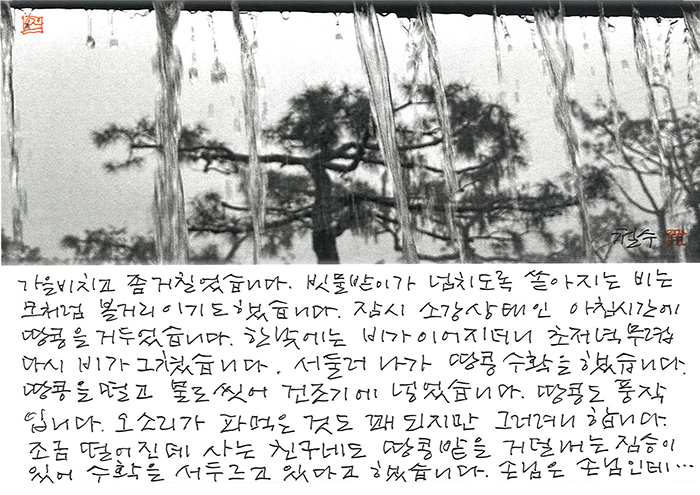 철수
가을비치고 좀 거칠었습니다. 빗물받이가 넘치도록 쏟아지는 비는
모처럼 볼거리이기도 했습니다. 잠시 소강상태인 아침시간에
땅콩을 거두었습니다. 한낮에는 비가 이어지더니 초저녁 무렵
다시 비가 그쳤습니다. 서둘러 나가 땅콩 수확을 했습니다.
땅콩을 떨고 물로 씻어 건조기에 넣었습니다. 땅콩도 풍작
입니다. 오소리가 파먹은 것도 꽤 되지만 그러려니 합니다.
조금 떨어진데 사는 친구네도 땅콩밭을 거덜내는 짐승이
있어 수확을 서두르고 있다고 했습니다. 손님은 손님인데…